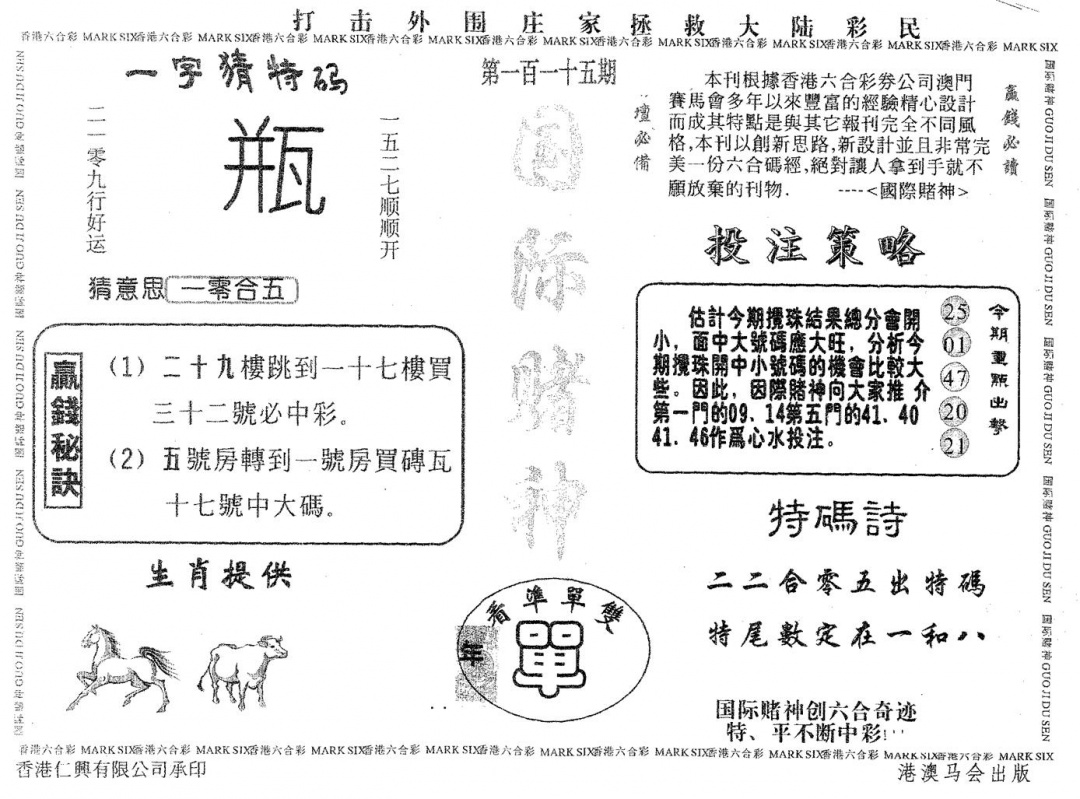 打击外围庄家拯救大陆彩民
香港六合彩 MARK SIX香港六合彩 MARK SIX香港六合彩 MARK SIX香港六合彩 MARK SIX香港六合彩 MARK SIX香港六合彩 MARK SIX香港六合彩 MARK SIX香港六合彩 MARK SIX香港六合彩 MARK SIX
一字猜特码
二一零九行好运
瓶
一五二七顺顺开
猜意思 一零合五
贏錢秘訣
(1) 二十九樓跳到一十七樓買
三十二號必中彩。
(2) 五號房轉到一號房買磚瓦
十七號中大碼。
生肖提供
第一百一十五期
国际赌神
看準單雙
年
單
壇必備
本刊根據香港六合彩券公司澳門
賽馬會多年以來豐富的經驗精心設計
而成其特點是與其它報刊完全不同風
格,本刊以創新思路,新設計並且非常完
美一份六合碼經,絕對讓人拿到手就不
願放棄的刊物. ----<國際賭神>
贏錢必讀
投注策略
估計今期攪珠結果總分會開
小，面中大號碼應大旺，分析今
期攪珠開中小號碼的機會比較大
些。因此，因際賭神向大家推 介
第一門的09、14第五門的41、40
41、46作爲心水投注。
25
01
47
20
21
今期重點出擊
特碼詩
二二合零五出特碼
特尾數定在一和八
国际赌神创六合奇迹
特、平不断中彩!
国际赌神 GUO JI DU SEN 国际赌神 GUO JI DU SEN 国际赌神 GUO JI DU SEN 国际赌神 GUO JI DU SEN 国际赌神 GUO JI DU SEN
香港六合彩 MARK SIX香港六合彩 MARK SIX香港六合彩 MARK SIX香港六合彩 MARK SIX香港六合彩 MARK SIX香港六合彩 MARK SIX香港六合彩 MARK SIX香港六合彩 MARK SIX香港六合彩 MARK SIX
香港仁興有限公司承印
港澳马会出版